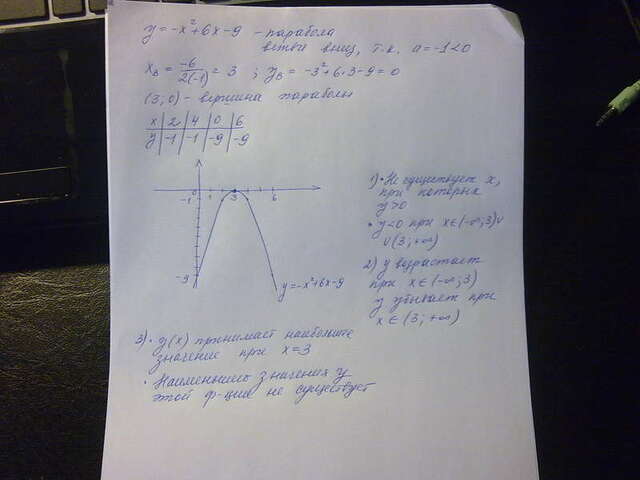 y=-x²+6x-9 - парабола
ветви вниз, т.к. a=-1<0
xв = -6/2(-1) = 3 ; yв = -3²+6·3-9=0
(3;0) - вершина параболы
x | 2 | 4 | 0 | 6
y | -1 | -1 | -9 | -9
-1 0 3 6
y=-x²+6x-9
1) • Не существует x,
при которых
y>0
• y<0 при x∈(-∞;3)∪
∪(3;+∞)
2) y возрастает
при x∈(-∞;3)
y убывает при
x∈(3;+∞)
3) • y(x) принимает наибольшее
значение при x=3
• Наименьшего значения у
этой ф-ции не существует